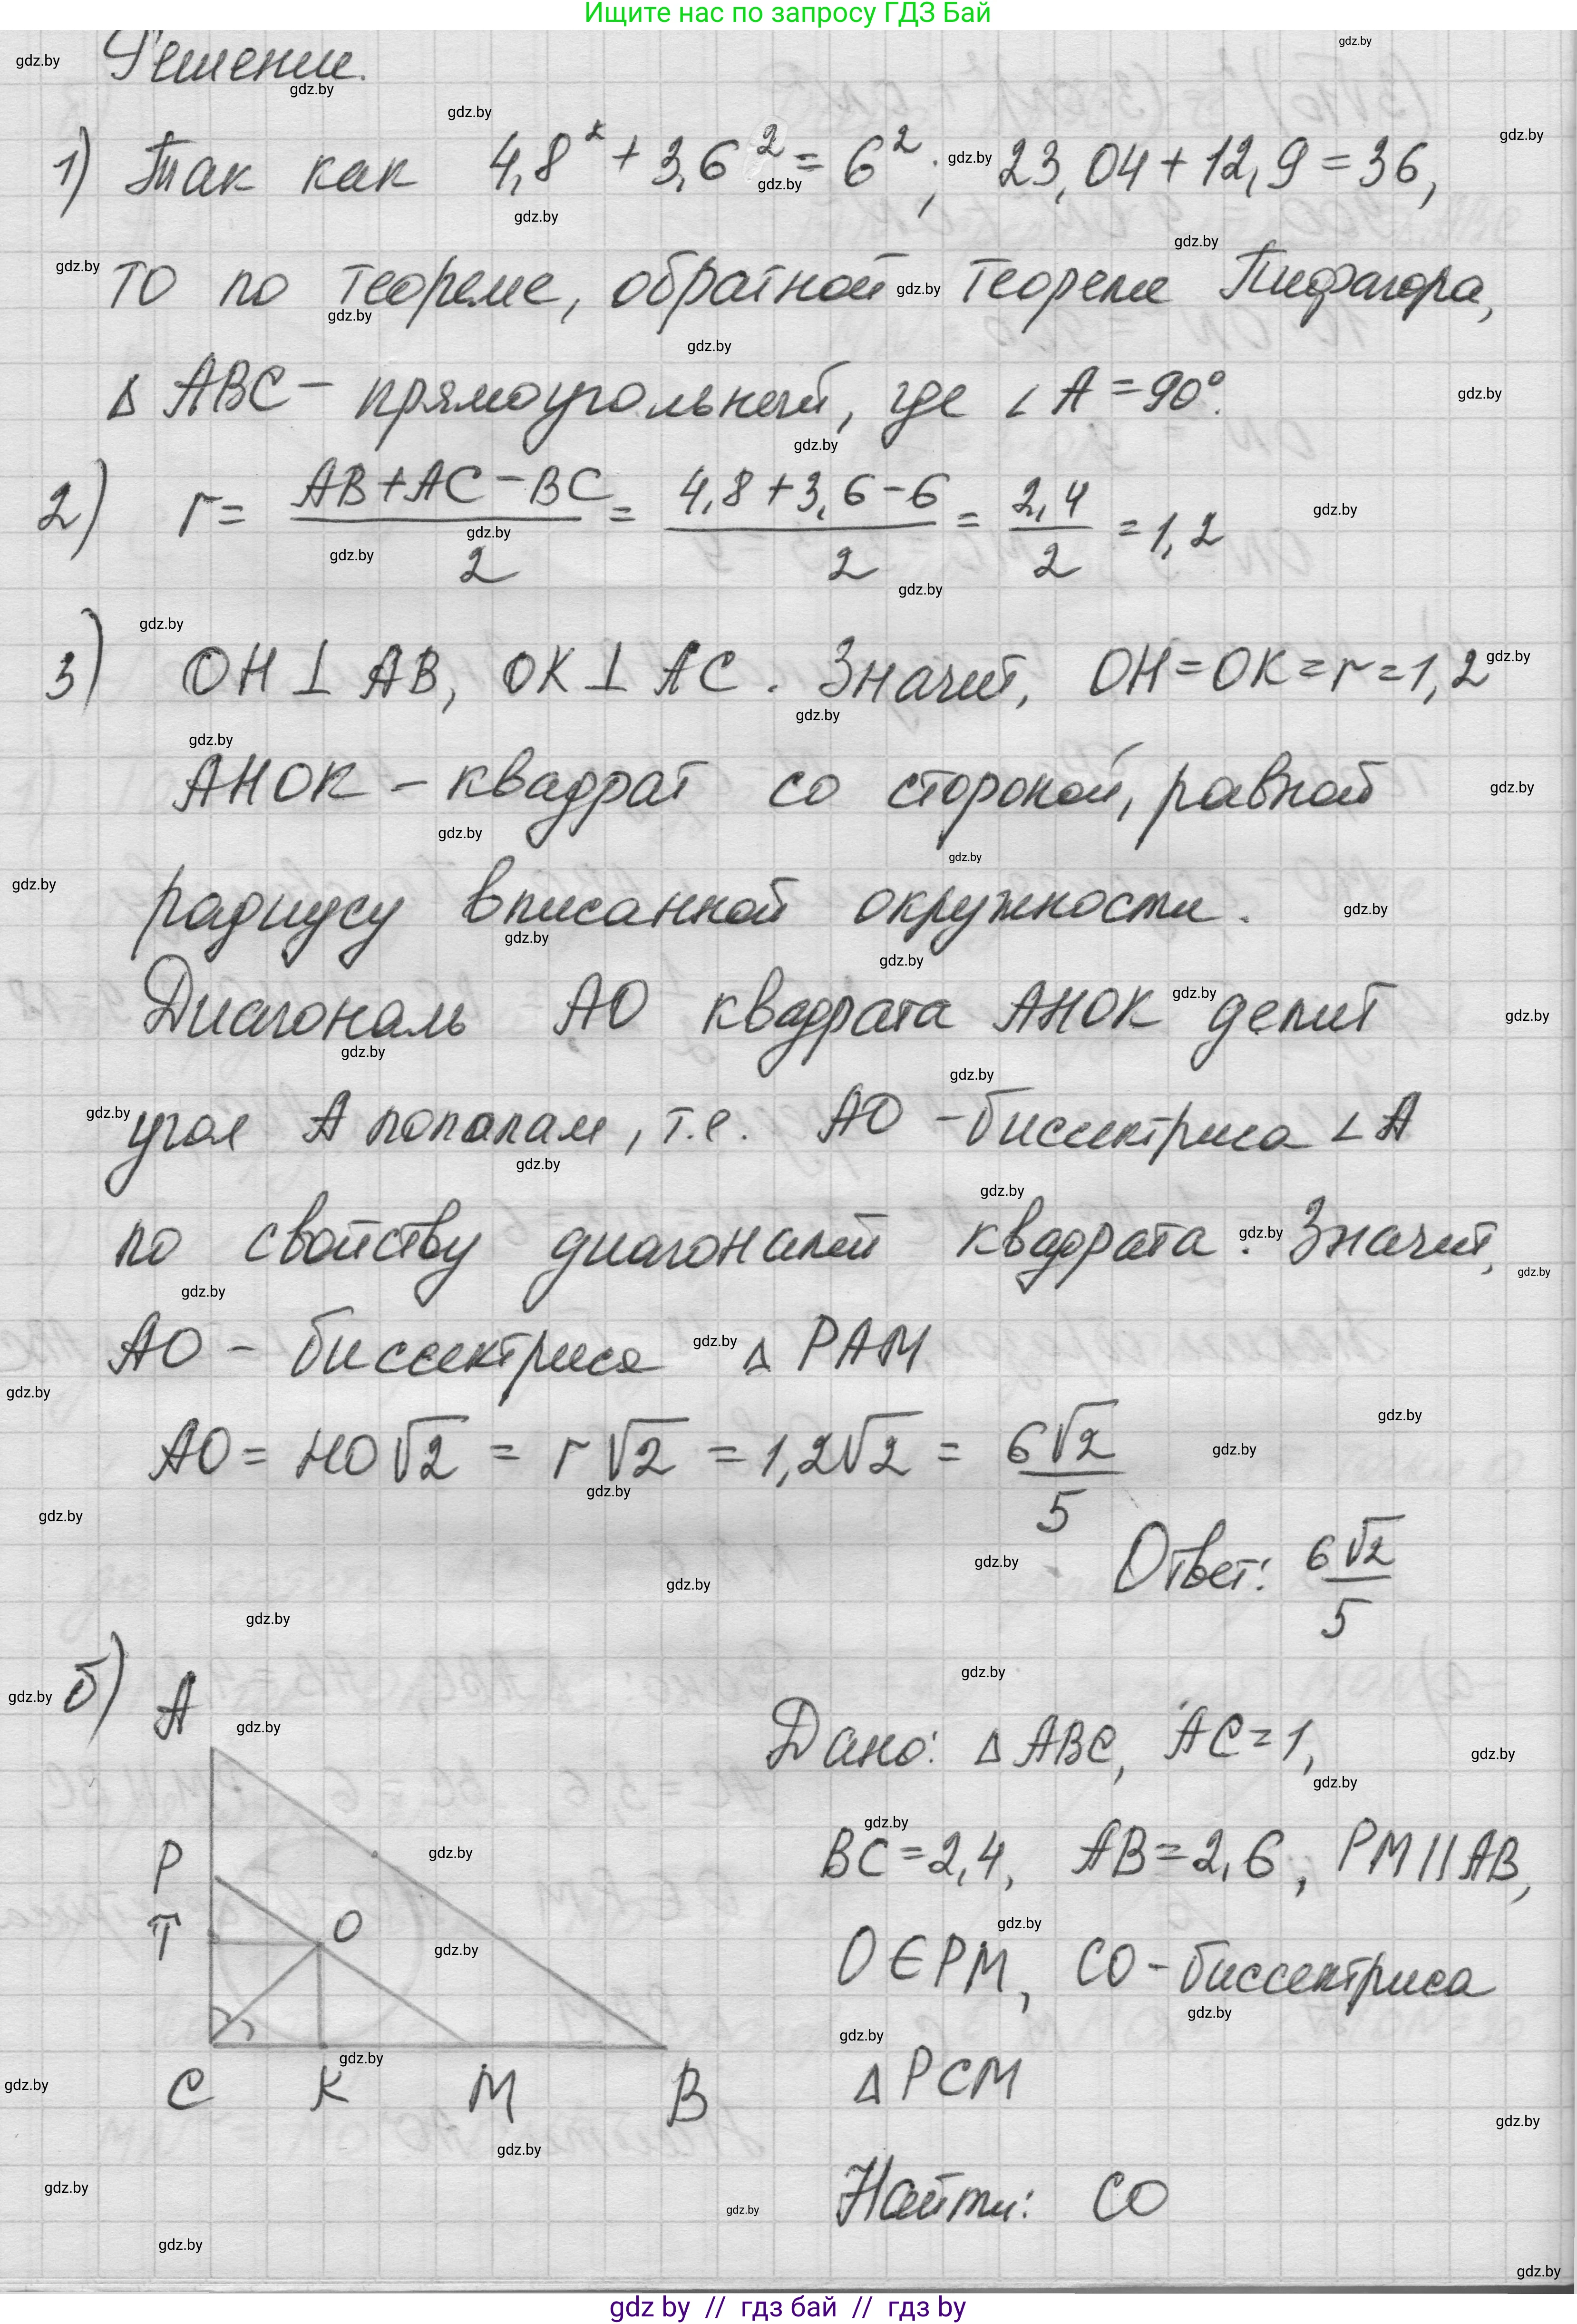 Ищите нас по запросу ГДЗ Бай
Решение.
1) Так как 4,8² + 3,6² = 6²; 23,04 + 12,9 = 36,
то по теореме, обратной теореме Пифагора,
Δ ABC – прямоугольный, где ∠A = 90°.
2) r = (AB + AC – BC)/2 = (4,8 + 3,6 – 6)/2 = 2,4/2 = 1,2
3) OH ⊥ AB, OK ⊥ AC. Значит, OH = OK = r = 1,2
AHOK – квадрат со стороной, равной
радиусу вписанной окружности.
Диагональ AO квадрата AHOK делит
угол A пополам, т.е. AO – биссектриса ∠A
по свойству диагоналей квадрата. Значит,
AO – биссектриса Δ PAM
AO = HO√2 = r√2 = 1,2√2 = 6√2/5
Ответ: 6√2/5
б) A
P
T
O
C K M B
Дано: Δ ABC, AC = 1,
BC = 2,4, AB = 2,6, PM || AB,
O ∈ PM, CO – биссектриса
Δ PCM
Найти: CO
gdz by // гдз бай // гдз by